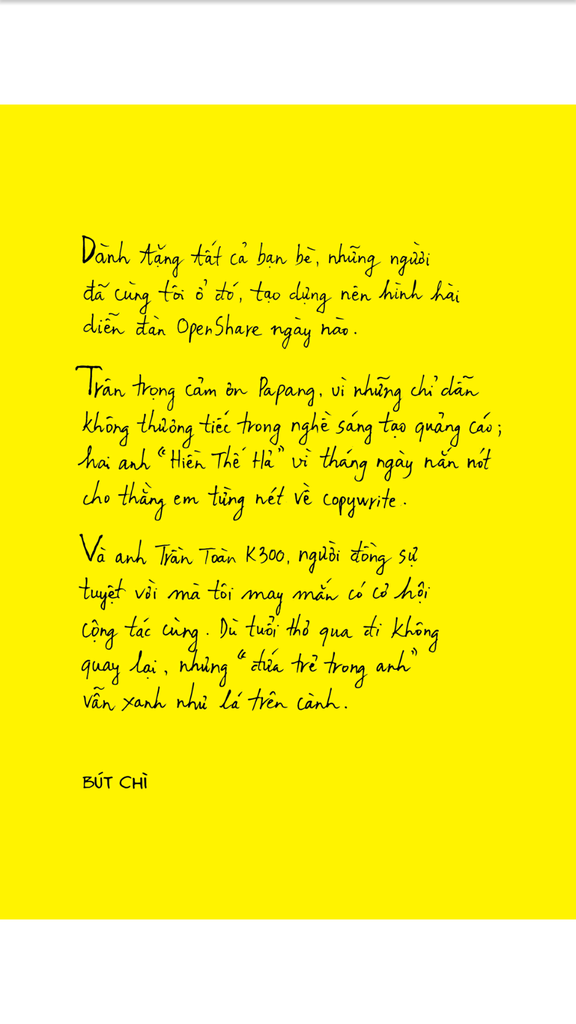 Dành tặng tất cả bạn bè, những người
đã cùng tôi ở đó, tạo dựng nên hình hài
diễn đàn OpenShare ngày nào.
Trân trọng cảm ơn Papang, vì những chỉ dẫn
không thương tiếc trong nghề sáng tạo quảng cáo;
hai anh “Hiền Thế Hả” vì tháng ngày nắn nót
cho thằng em từng nét về copywrite.
Và anh Trần Toàn K300, người đồng sự
tuyệt vời mà tôi may mắn có cơ hội
cộng tác cùng. Dù tuổi thơ qua đi không
quay lại, nhưng “đứa trẻ trong anh”
vẫn xanh như lá trên cành.
BÚT CHÌ